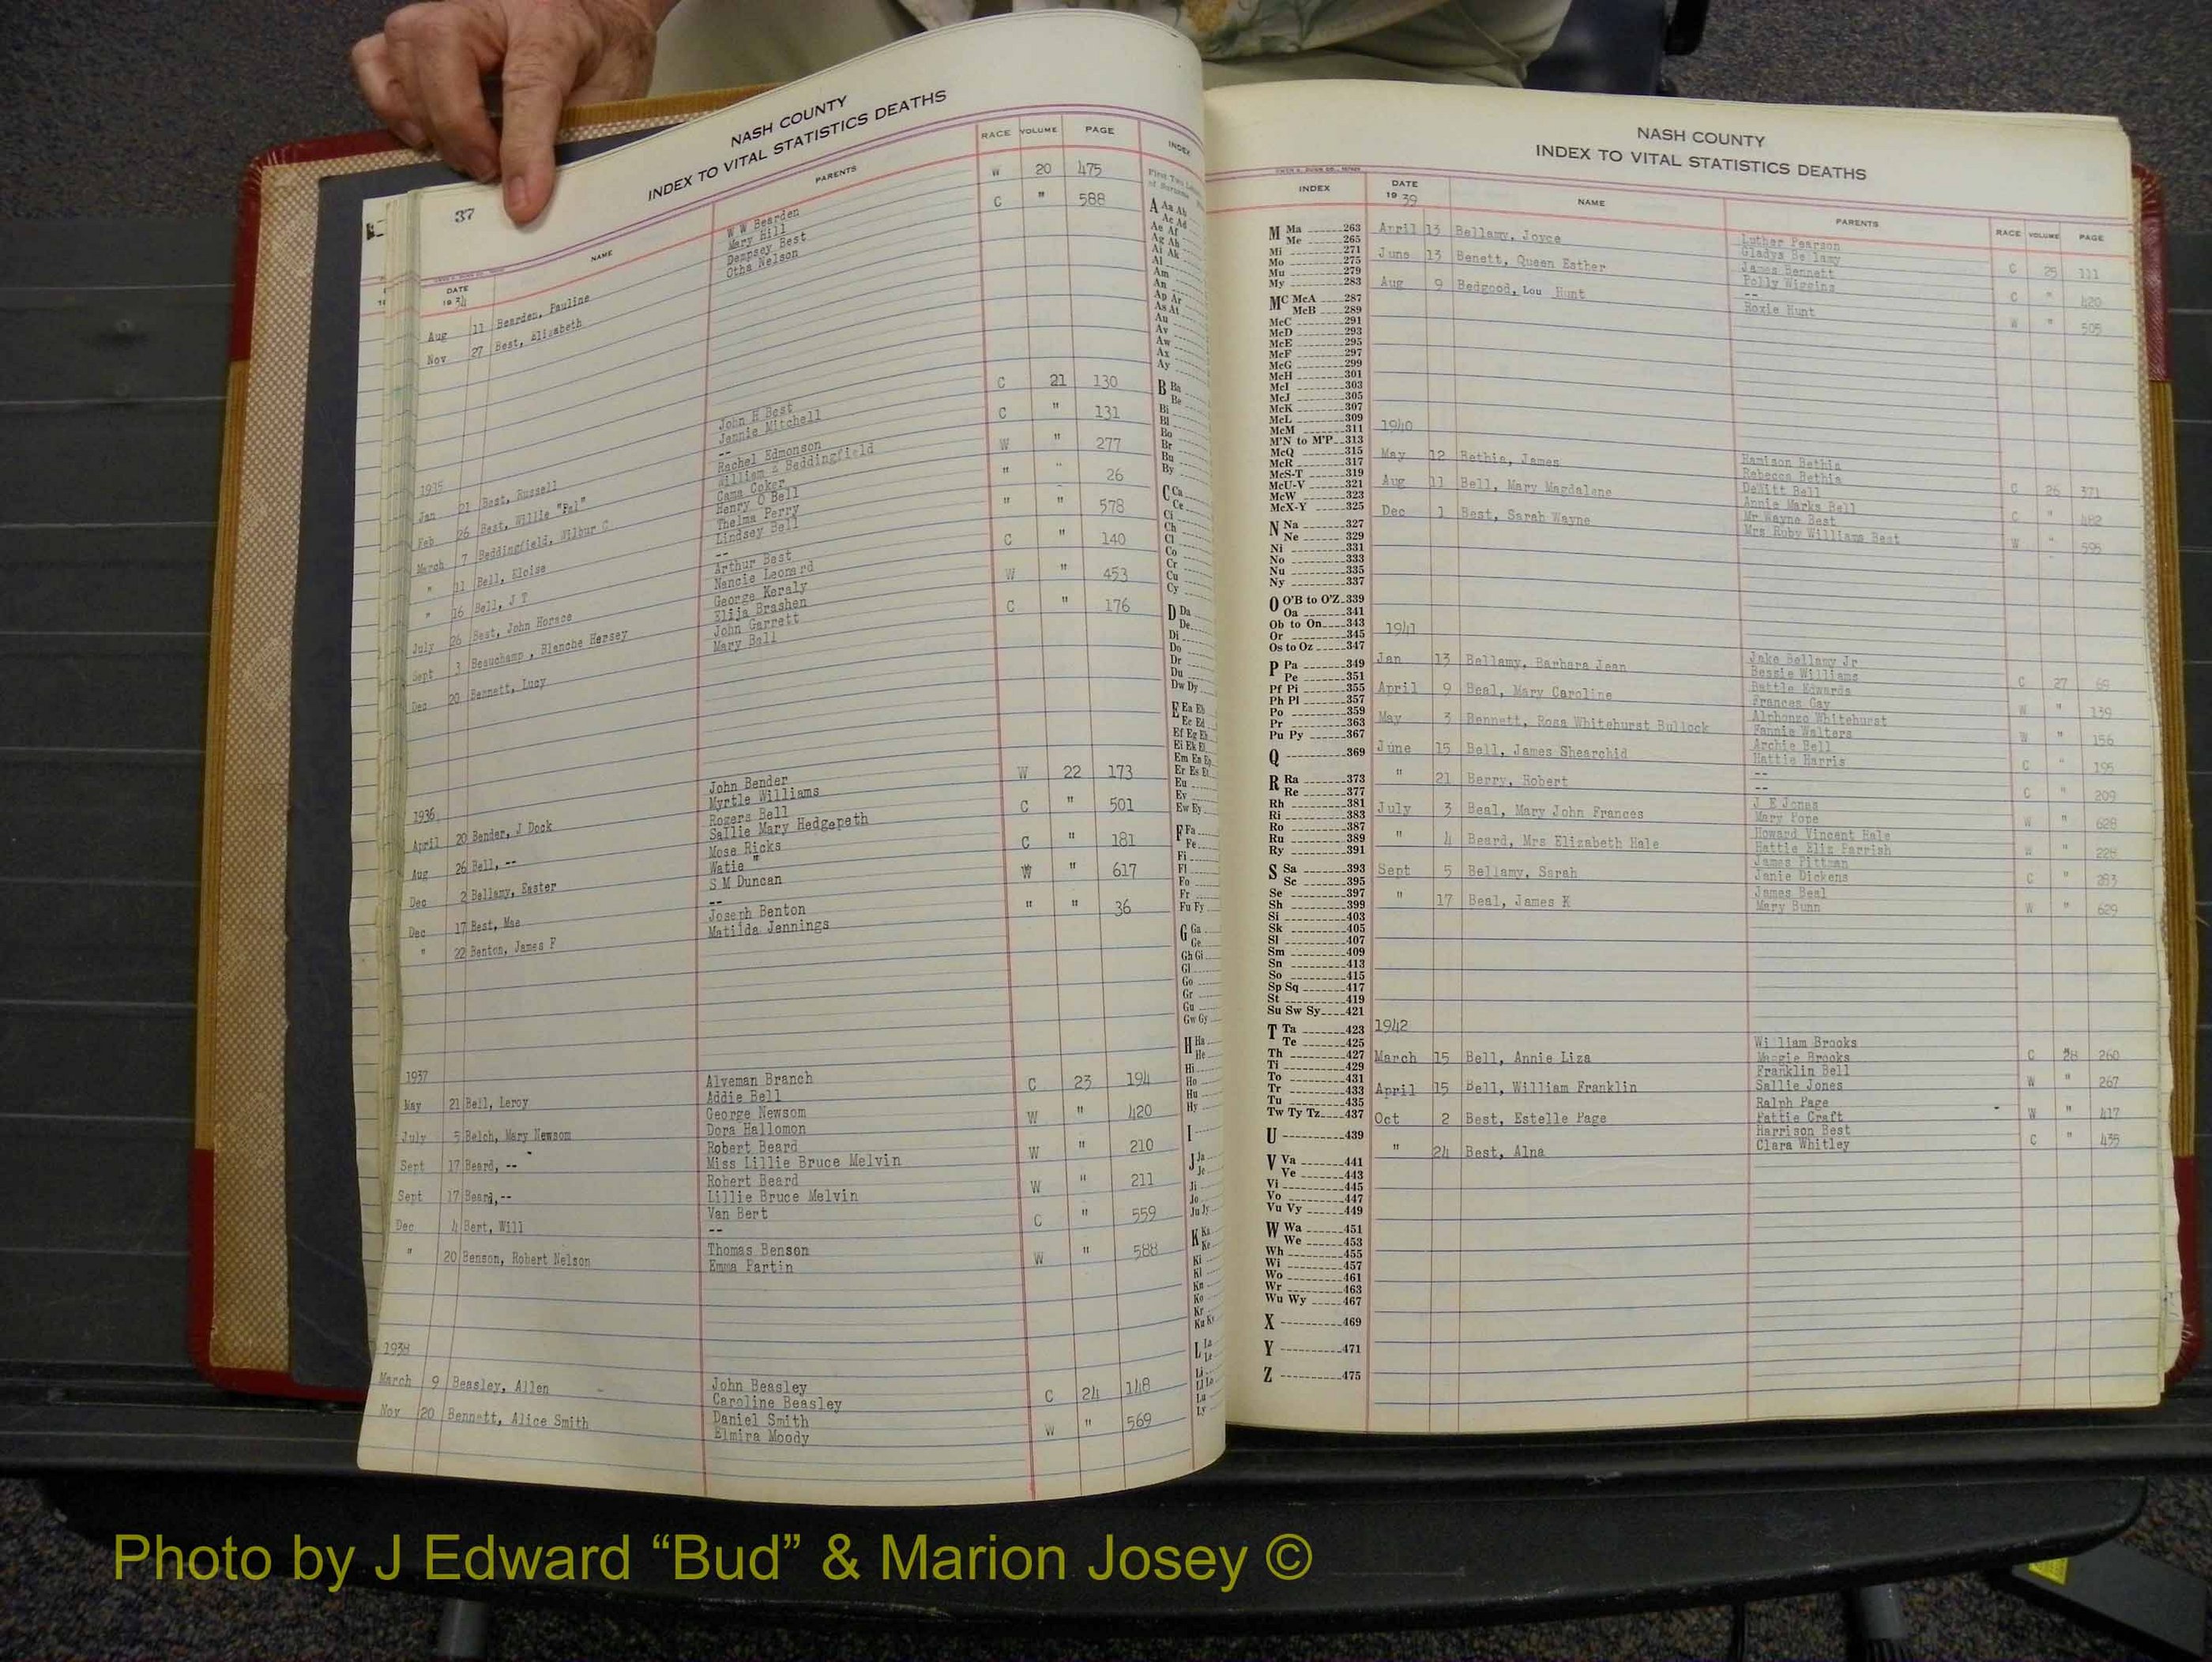 37
NASH COUNTY
INDEX TO VITAL STATISTICS DEATHS
DATE
1934
NAME
PARENTS
RACE VOLUME PAGE
INDEX
Aug 11 Bearden, Pauline W W Bearden W 20 475
Mary Hill
Nov 27 Best, Elizabeth Dempsey Best C " 588
Otha Nelson
1935
Jan 21 Best, Russell John H Best C 21 130
Jennie Mitchell
Feb 26 Best, Willie "Pal" -- C " 131
Rachel Edmonson
March 7 Beddingfield, Wilbur C William & Beddingfield W " 277
Cama Coker
" 11 Bell, Eloise Henry O Bell " " 26
Thelma Perry
" 16 Bell, J T Lindsey Bell " " 578
--
July 26 Best, John Horace Arthur Best C " 140
Nancie Leonard
Sept 3 Beauchamp, Blanche Hersey George Keraly W " 453
Elija Brashen
Dec 20 Bennett, Lucy John Garrett C " 176
Mary Bell
1936
April 20 Bender, J Dock John Bender W 22 173
Myrtle Williams
Aug 26 Bell, -- Rogers Bell C " 501
Sallie Mary Hedgepeth
Dec 2 Bellamy, Easter Mose Ricks C " 181
Watie "
Dec 17 Best, Mae S M Duncan W " 617
--
" 22 Benton, James F Joseph Benton " " 36
Matilda Jennings
1937
May 21 Bell, Leroy Alveman Branch C 23 194
Addie Bell
July 5 Belch, Mary Newsom George Newsom W " 420
Dora Hallomon
Sept 17 Beard, -- Robert Beard W " 210
Miss Lillie Bruce Melvin
Sept 17 Beard,-- Robert Beard W " 211
Lillie Bruce Melvin
Dec 4 Bert, Will Van Bert C " 559
--
" 20 Benson, Robert Nelson Thomas Benson W " 588
Emma Partin
1938
March 9 Beasley, Allen John Beasley C 24 148
Caroline Beasley
Nov 20 Bennett, Alice Smith Daniel Smith W " 569
Elmira Moody
A Aa Ab
Ac Ad
Ae Af
Ag Ah
Ai Ak
Al
Am
An
Ap Ar
As At
Au
Av
Aw
Ax
Ay
B Ba
Be
Bi
Bl
Bo
Br
Bu
By
C Ca
Ce
Ci
Ch
Cl
Co
Cr
Cu
Cy
D Da
De
Di
Do
Dr
Du
Dw Dy
E Ea Eb
Ec Ed
Ef Eg Eh
Ei Ek El
Em En Ep
Er Es Et
Eu
Ev
Ew Ey
F Fa
Fe
Fi
Fl
Fo
Fr
Fu Fy
G Ga
Ge
Gh Gi
Gl
Go
Gr
Gu
Gw Gy
H Ha
He
Hi
Ho
Hu
Hy
I
J Ja
Je
Ji
Jo
Ju Jy
K Ka
Ke
Ki
Kl
Kn
Ko
Kr
Ku Ky
L La
Le
Li
Ll Lo
Lu
Ly
NASH COUNTY
INDEX TO VITAL STATISTICS DEATHS
INDEX
DATE
1939
NAME
PARENTS
RACE VOLUME PAGE
M Ma 263
Me 265
Mi 271
Mo 275
Mu 279
My 283
MC McA 287
McB 289
McC 291
McD 293
McE 295
McF 297
McG 299
McH 301
McI 303
McJ 305
McK 307
McL 309
McM 311
M'N to M'P 313
McQ 315
McR 317
McS-T 319
McU-V 321
McW 323
McX-Y 325
N Na 327
Ne 329
Ni 331
No 333
Nu 335
Ny 337
O O'B to O'Z 339
Oa 341
Ob to On 343
Or 345
Os to Oz 347
P Pa 349
Pe 351
Pf Pi 355
Ph Pl 357
Po 359
Pr 363
Pu Py 367
Q 369
R Ra 373
Re 377
Rh 381
Ri 383
Ro 387
Ru 389
Ry 391
S Sa 393
Sc 395
Se 397
Sh 399
Si 403
Sk 405
Sl 407
Sm 409
Sn 413
So 415
Sp Sq 417
St 419
Su Sw Sy 421
T Ta 423
Te 425
Th 427
Ti 429
To 431
Tr 433
Tu 435
Tw Ty Tz 437
U 439
V Va 441
Ve 443
Vi 445
Vo 447
Vu Vy 449
W Wa 451
We 453
Wh 455
Wi 457
Wo 461
Wr 463
Wu Wy 467
X 469
Y 471
Z 475
April 13 Bellamy, Joyce Luther Pearson C 25 111
Gladys Bellamy
June 13 Benett, Queen Esther James Bennett C " 420
Polly Wiggins
Aug 9 Bedgood, Lou Hunt -- W " 505
Roxie Hunt
1940
May 12 Bethia, James Hamison Bethia C 26 371
Rebecca Bethia
Aug 11 Bell, Mary Magdalene DeWitt Bell C " 482
Annie Marks Bell
Dec 1 Best, Sarah Wayne Mr Wayne Best W " 595
Mrs Ruby Williams Best
1941
Jan 13 Bellamy, Barbara Jean Jake Bellamy Jr C 27 69
Bessie Williams
April 9 Beal, Mary Caroline Battle Edwards W " 139
Frances Gay
May 3 Bennett, Rosa Whitehurst Bullock Alphonzo Whitehurst W " 156
Fannie Walters
June 15 Bell, James Shearchid Archie Bell C " 195
Hattie Harris
" 21 Berry, Robert -- C " 209
--
July 3 Beal, Mary John Frances J E Jones W " 628
Mary Pope
" 4 Beard, Mrs Elizabeth Hale Howard Vincent Hale W " 228
Hattie Eliz Parrish
Sept 5 Bellamy, Sarah James Pittman C " 283
Janie Dickens
" 17 Beal, James K James Beal W " 629
Mary Bunn
1942
March 15 Bell, Annie Liza William Brooks C 28 260
Maggie Brooks
April 15 Bell, William Franklin Franklin Bell W " 267
Sallie Jones
Oct 2 Best, Estelle Page Ralph Page W " 417
Pattie Craft
" 24 Best, Alna Harrison Best C " 435
Clara Whitley
Photo by J Edward “Bud” & Marion Josey ©